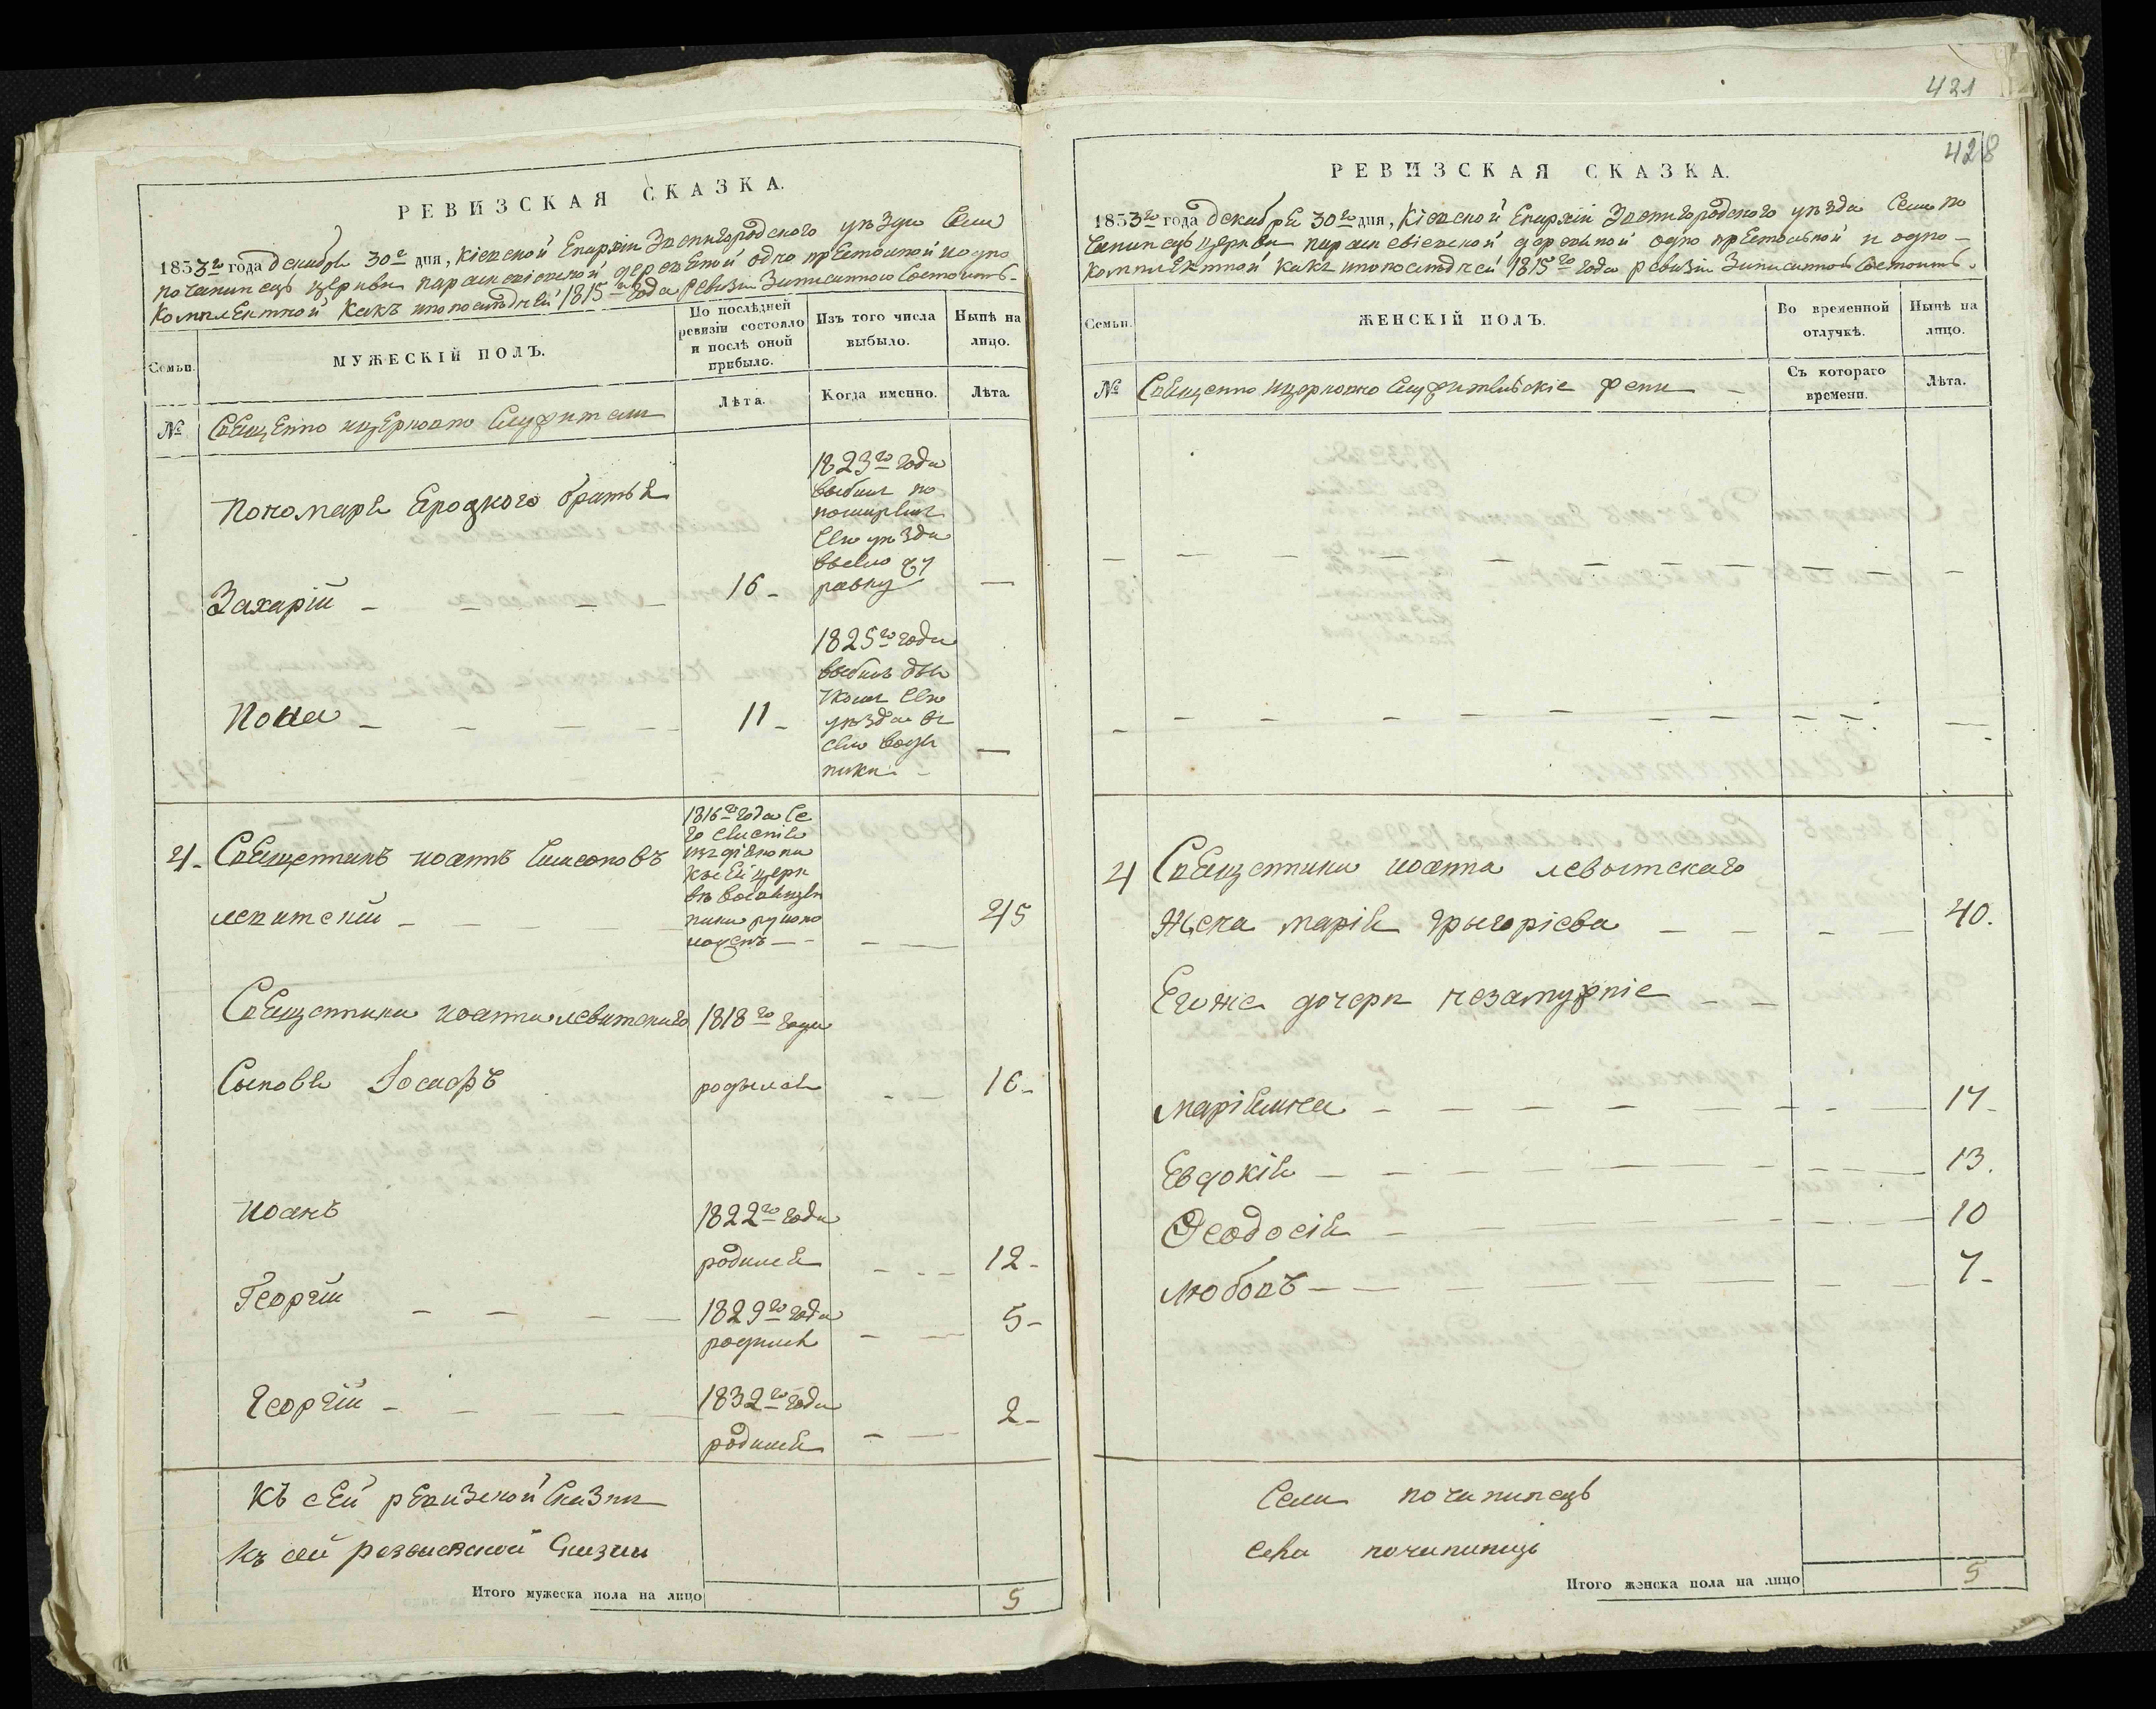 421
428
РЕВИЗСКАЯ СКАЗКА.
1833го года декабря 30го дня, Кіевской Епархіи Звенигородского уѣзда Села
Почапинецъ церкви параскевіевской деревяной одно престолной и одно
Комплектной какъ по последней 1815го года ревизіи Записанного Состоитъ
Семьи.
МУЖЕСКІЙ ПОЛЪ.
По послѣдней ревизіи состояло и послѣ оной прибыло.
Изъ того числа выбыло.
Нынѣ на лицо.
Лѣта.
Когда именно.
Лѣта.
№
Священно ицерковно Служители
Пономаря братья
1823го года
выбылъ
уѣзда
Захарій 16
1825го года
выбылъ
уѣзда въ
Іона 11
4 Священникъ иоаннъ Симеоновъ
левитскій
1816го года
45
Священника иоанна левитскаго
Сыновя Іосафъ
1818го года
родылся
16
иоанъ
1822го года
родился
12
Георгій
1829го года
родился
5
Георгій
1832го года
родился
2
Къ сей ревизской Сказки
къ сей ревизской Сказки
Итого мужеска пола на лицо 5
РЕВИЗСКАЯ СКАЗКА.
1833го года декабря 30го дня, Кіевской Епархіи Звенигородского уѣзда Села По
чапинецъ церкви параскевіевской деревяной одно престольной и одно
комплектной какъ по последней 1815го года ревизіи Записанной Состоитъ
Семьи.
ЖЕНСКІЙ ПОЛЪ.
Во временной отлучкѣ.
Нынѣ на лицо.
Съ котораго времени.
Лѣта.
№
Священно ицерковно Служительскіе жены
4 Священника иоанна левытскаго
Жена марія Грыгоріева 40.
Егоже дочери незамужніе
маріамна 17
Евдокія 13.
Феодосія 10
любовъ 7
Села почапинецъ
села почапинецъ
Итого женска пола на лицо 5